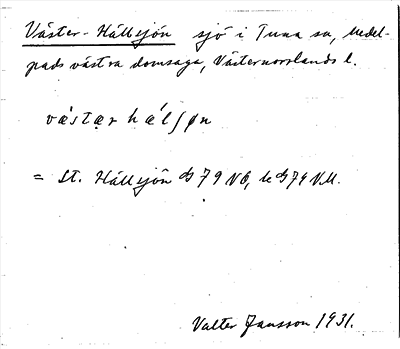 Väster-Hällsjön sjö i Tuna sn, Medel-
pads västra domsaga, Västernorrlands l.
västęr hälʃøn
= St. Hällsjön 79 NV,
Valter Jansson 1931.